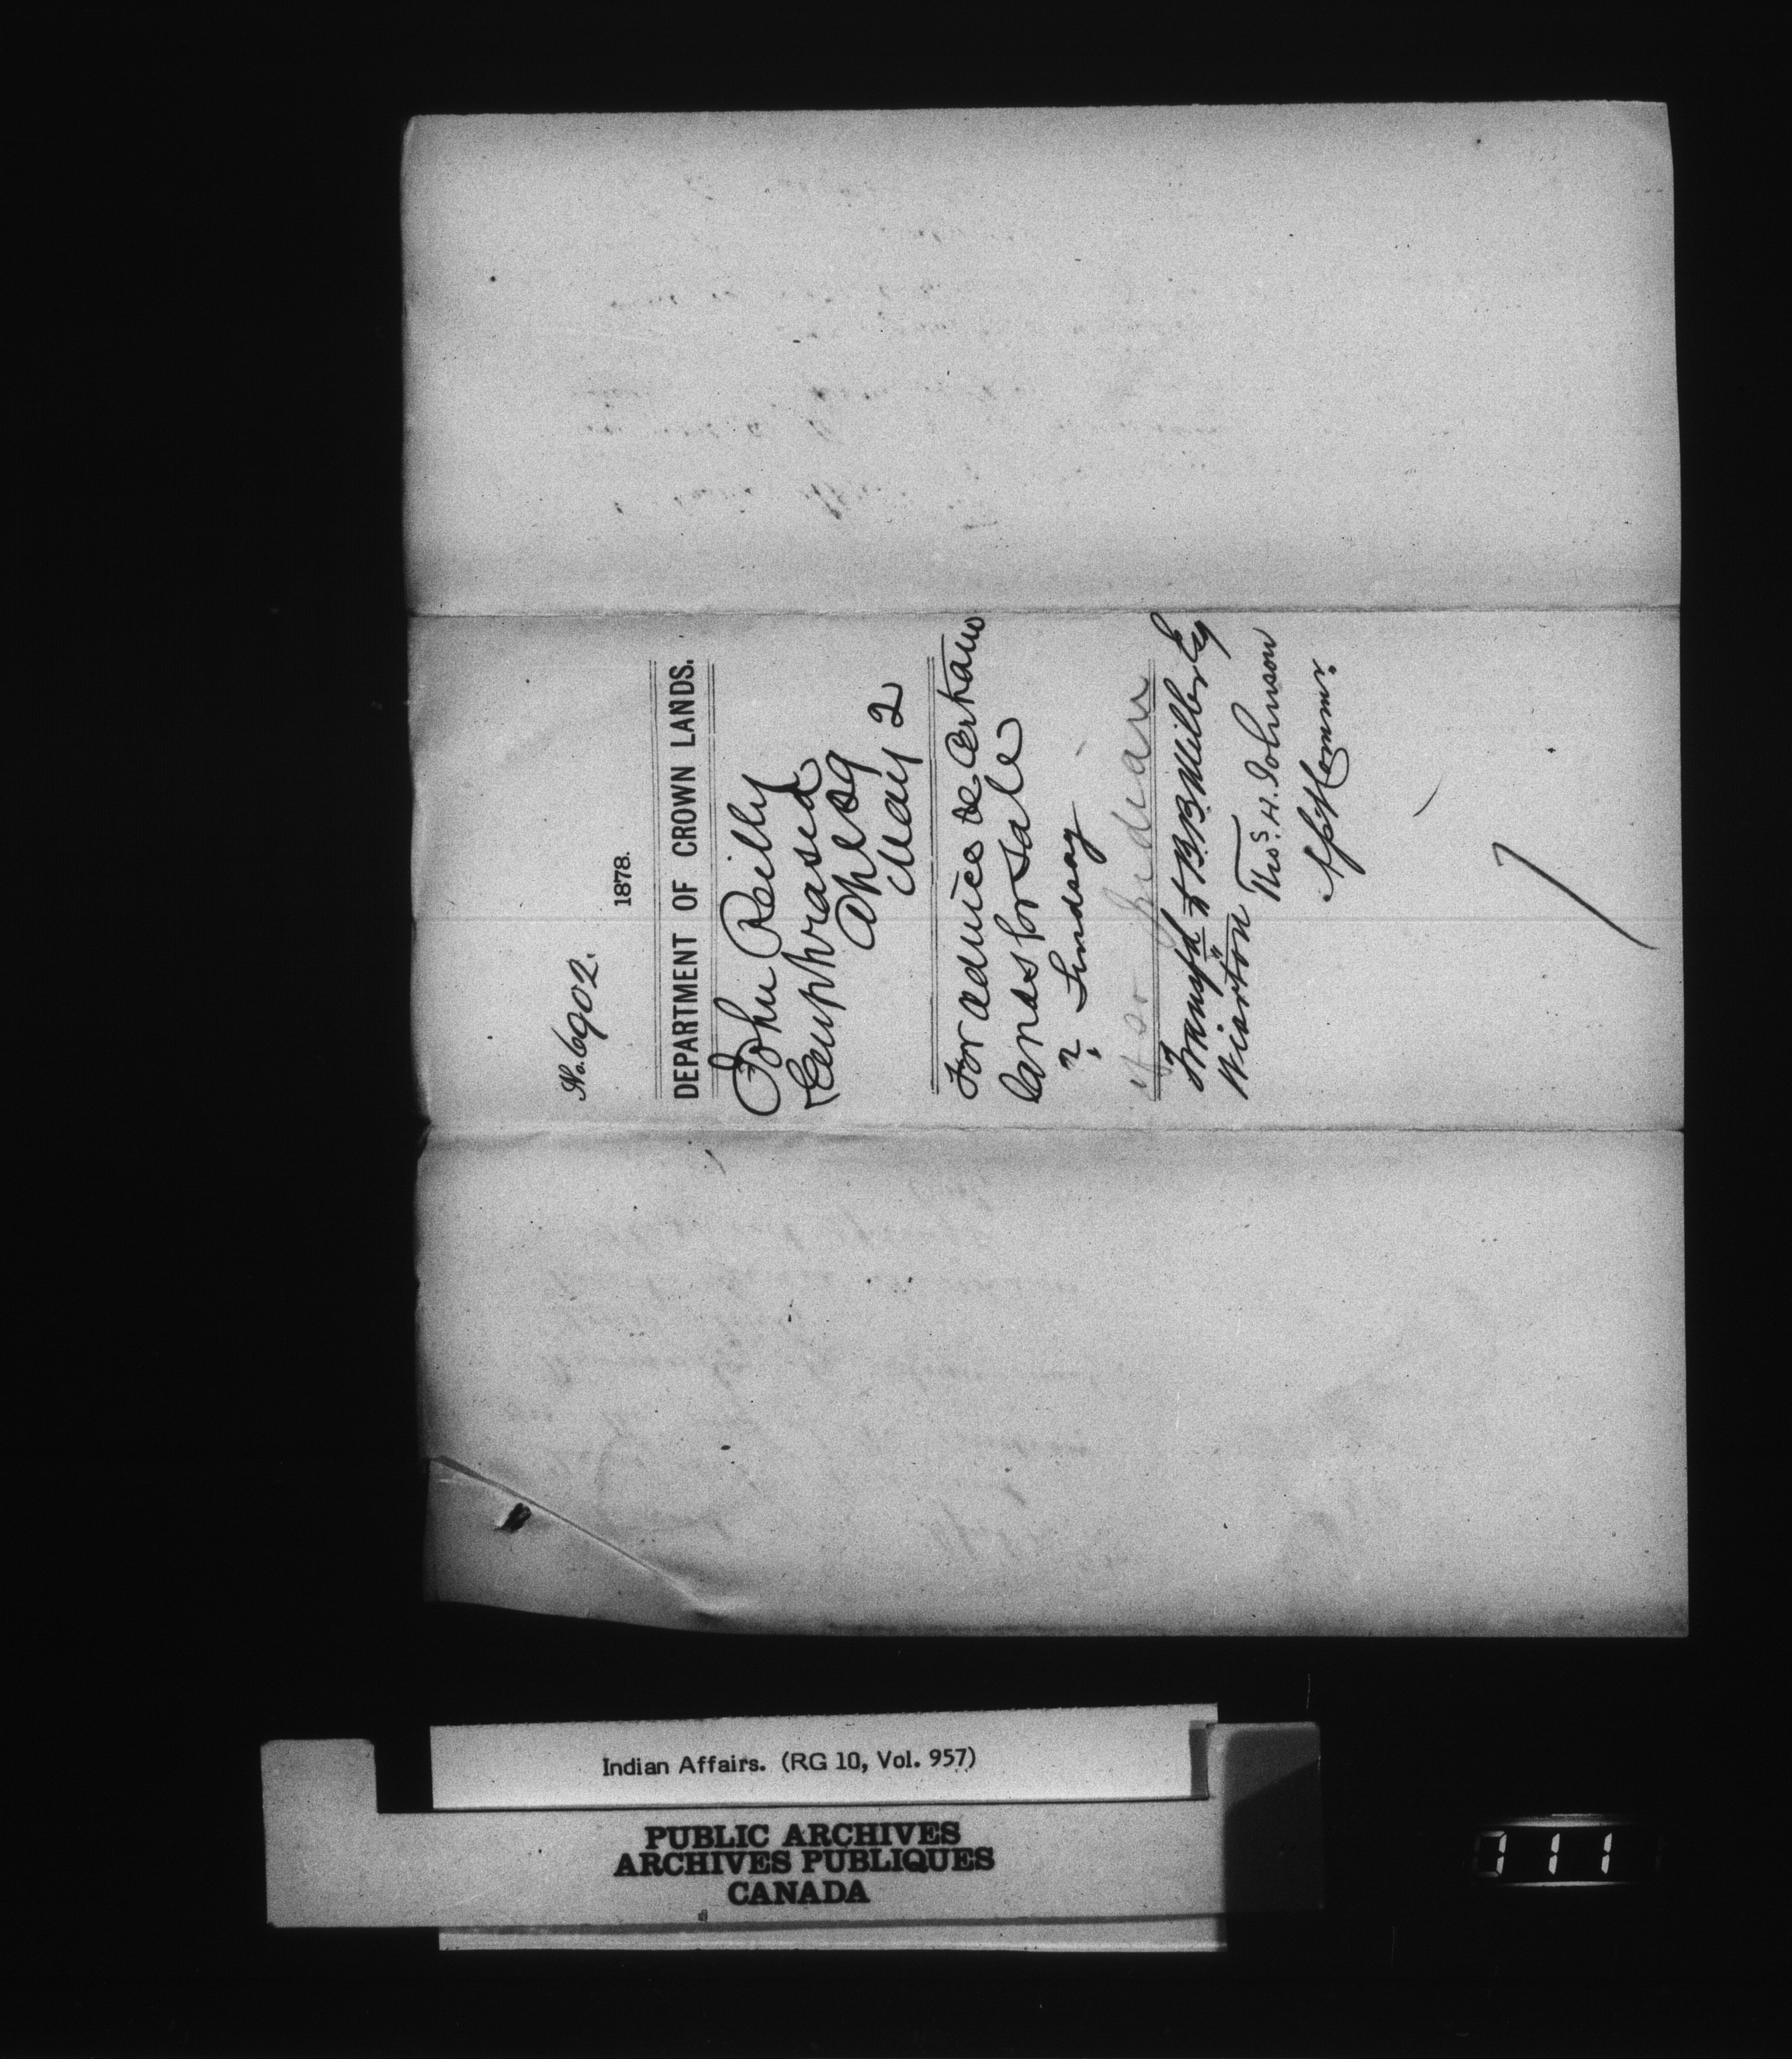 No. 6902.
1878.
DEPARTMENT OF CROWN LANDS.
John Reilly
Euphrasia
Apl 29
May 2
For advice re Certain
lands for Sale
in Lindsay
if so Indian
Transfd to B. B. Miller Esq
Wiarton
Thos. H. Johnson
Asst Commr.
Indian Affairs. (RG 10, Vol. 957)
PUBLIC ARCHIVES
ARCHIVES PUBLIQUES
CANADA
111